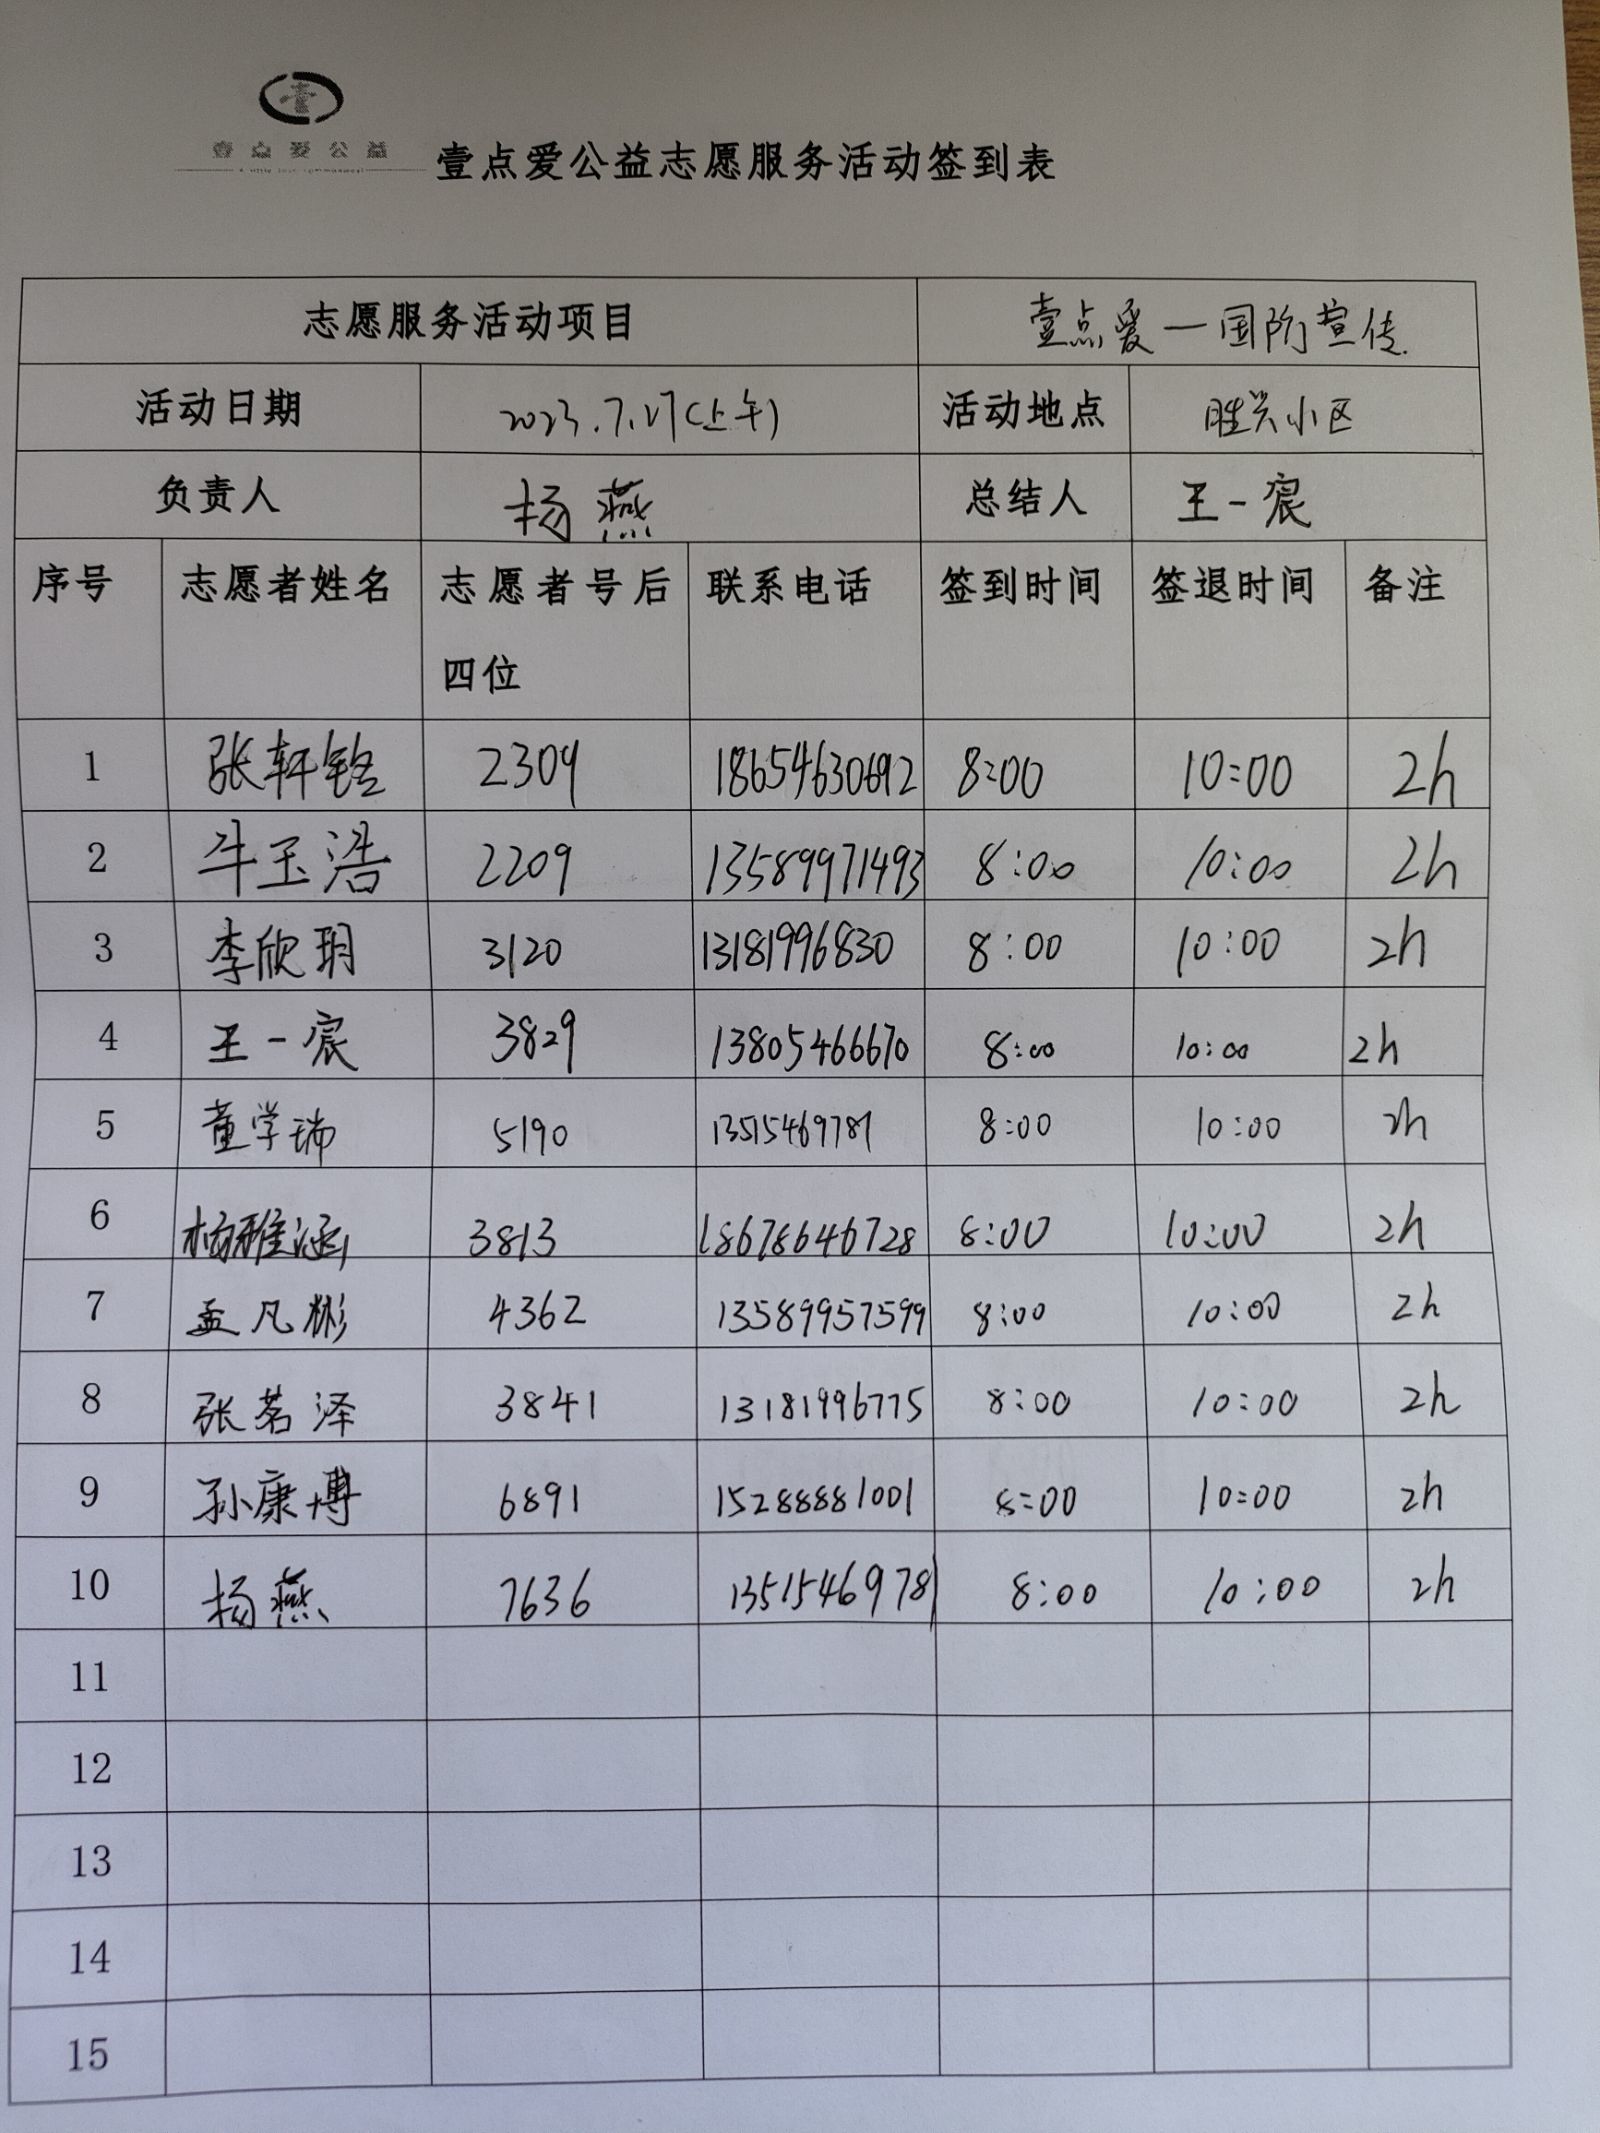 壹点爱公益
壹点爱公益志愿服务活动签到表
志愿服务活动项目 壹点爱一国防宣传
活动日期 2023.7.27(上午) 活动地点 胜兴小区
负责人 杨燕 总结人 王一宸
序号 志愿者姓名 志愿者号后 联系电话 签到时间 签退时间 备注
四位
1 张轩铭 2309 18654630692 8:00 10:00 2h
2 牛玉浩 2209 13589971493 8:00 10:00 2h
3 李欣玥 3120 13181996830 8:00 10:00 2h
4 王一宸 3829 13805466670 8:00 10:00 2h
5 董学瑞 5190 13515469781 8:00 10:00 2h
6 杨雅涵 3813 18678646728 8:00 10:00 2h
7 孟凡彬 4362 13589957599 8:00 10:00 2h
8 张茗泽 3841 13181996775 8:00 10:00 2h
9 孙康博 6891 15288881001 8:00 10:00 2h
10 杨燕 7636 13515469781 8:00 10:00 2h
11
12
13
14
15